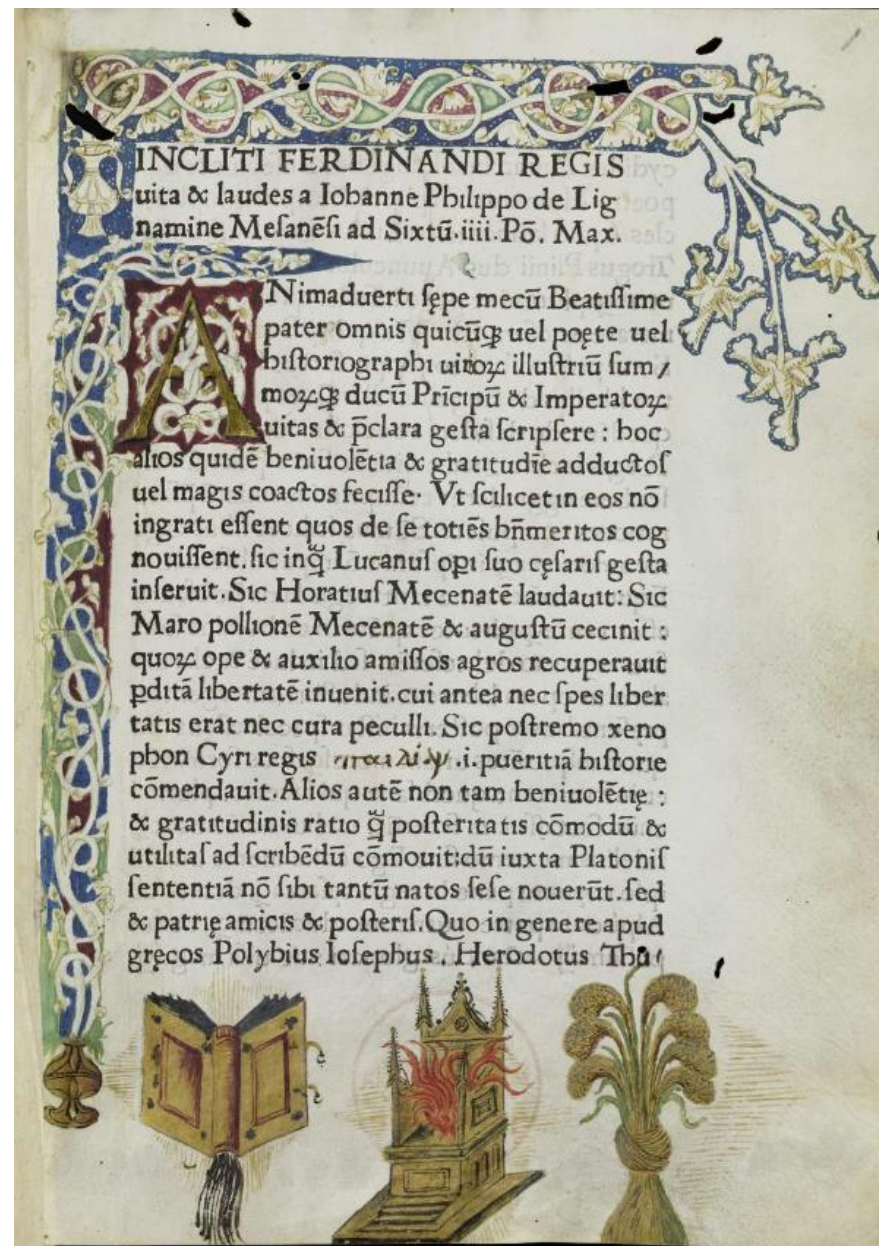 INCLITI FERDINANDI REGIS
uita & laudes a Iohanne Philippo de Lig
namine Mesanēsi ad Sixtū.iiii.Pō. Max.
ANimaduerti sępe mecū Beatissime
pater omnis quicūqꝫ uel poęte uel
historiographi uiroꝝ illustriū sum/
moꝝqꝫ ducū Prīcipū & Imperatoꝝ
uitas & p̄clara gesta scripsere : hoc
alios quidē beniuolētia & gratitudīe adductos
uel magis coactos fecisse. Vt scilicet in eos nō
ingrati essent quos de se totiēs bn̄meritos cog
nouissent.sic inq̄ Lucanus oꝑi suo cęsaris gesta
inseruit.Sic Horatius Mecenatē laudauit: Sic
Maro pollionē Mecenatē & augustū cecinit :
quoꝝ ope & auxilio amissos agros recuperauit
ꝑditā libertatē inuenit.cui antea nec spes liber
tatis erat nec cura peculii. Sic postremo xeno
phon Cyri regis .i.pueritiā historie
cōmendauit.Alios autē non tam beniuolētię :
& gratitudinis ratio q̄ posteritatis cōmodū &
utilitas ad scribēdū cōmouit:dū iuxta Platonis
sententiā nō sibi tantū natos sese nouerūt.sed
& patrię amicis & posteris.Quo in genere apud
gręcos Polybius Iosephus . Herodotus Thu